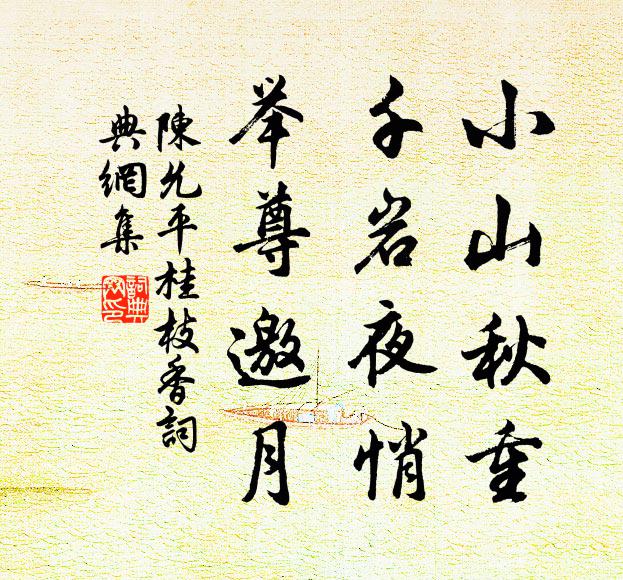 小山秋重
千岩夜悄
举尊邀月
陳允平桂枝香詞
典網集
詞典網印